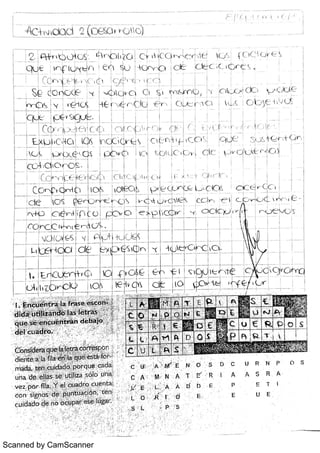 Actividad 2 (DESARROLLO)
2. Atributos: Analiza críticamente los factores
que influyen en su toma de decisiones.
Competencia genérica
Se conoce y valora a si mismo, y aborda proble-
mas y retos teniendo en cuenta los objetivos
que persigue.
Explicita las nociones científicas que sustentan
los procesos para la solución de problemas
cotidianos.
Confronta las ideas preconcebidas acerca
de los fenómenos naturales con el conocimie-
nto científico para explicar y adquirir nuevos
conocimientos.
Valores y Actitudes
Libertad de expresión y tolerancia.
1. Encuentra la frase en el siguiente crucigrama
utilizando las letras de la parte inferior
1. Encuentra la frase escon-
dida utilizando las letras
que se encuentran debajo
del cuadro.
Considera que la letra correspon-
diente a la fila en la que está for-
mada, ten cuidado porque cada
una de ellas se utiliza sólo una
vez por fila. Y el cuadro cuenta
con signos de puntuación, ten
cuidado de no ocupar ese lugar.
LA MATERIA SE
COMPONE DE UNA
SERIE DE CUERDOS
LLAMADOS PARTI
CULAS
C U A M E N O S D C U R N P O S
C A M N A T E R I A A S R A
E L A A D D E P E T I
L O R I O E E U E
S L P S
Scanned by CamScanner